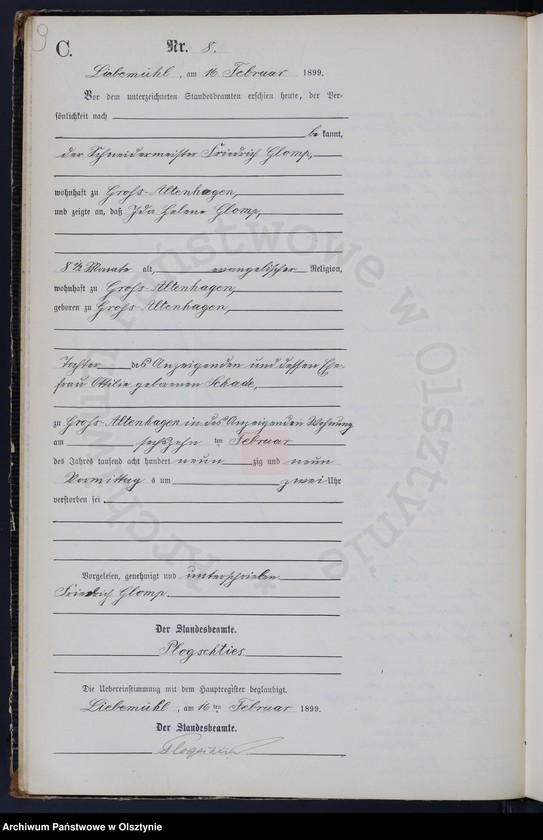 9
C.
Nr. 8.
Liebemühl, am 16 Februar 1899.
Vor dem unterzeichneten Standesbeamten erschien heute, der Per-
sönlichkeit nach
be kannt,
der Schneidermeister Friedrich Glomp,
wohnhaft zu Groß-Altenhagen,
und zeigte an, daß Ida Helene Glomp,
8 1/2 Monate alt, evangelischer Religion,
wohnhaft zu Groß-Altenhagen,
geboren zu Groß-Altenhagen,
Tochter des Anzeigenden und dessen Ehe-
frau Ottilie geborenen Schade,
zu Groß-Altenhagen in des Anzeigenden Wohnung
am sechszehn ten Februar
des Jahres tausend acht hundert neun zig und neun
Vormittag s um zwei Uhr
verstorben sei
Vorgelesen, genehmigt und unterschrieben
Friedrich Glomp.
Der Standesbeamte.
Plogschties
Die Uebereinstimmung mit dem Hauptregister beglaubigt.
Liebemühl, am 16 ten Februar 1899.
Der Standesbeamte.
Plogschties
Archiwum Państwowe w Olsztynie *
Archiwum Państwowe w Olsztynie